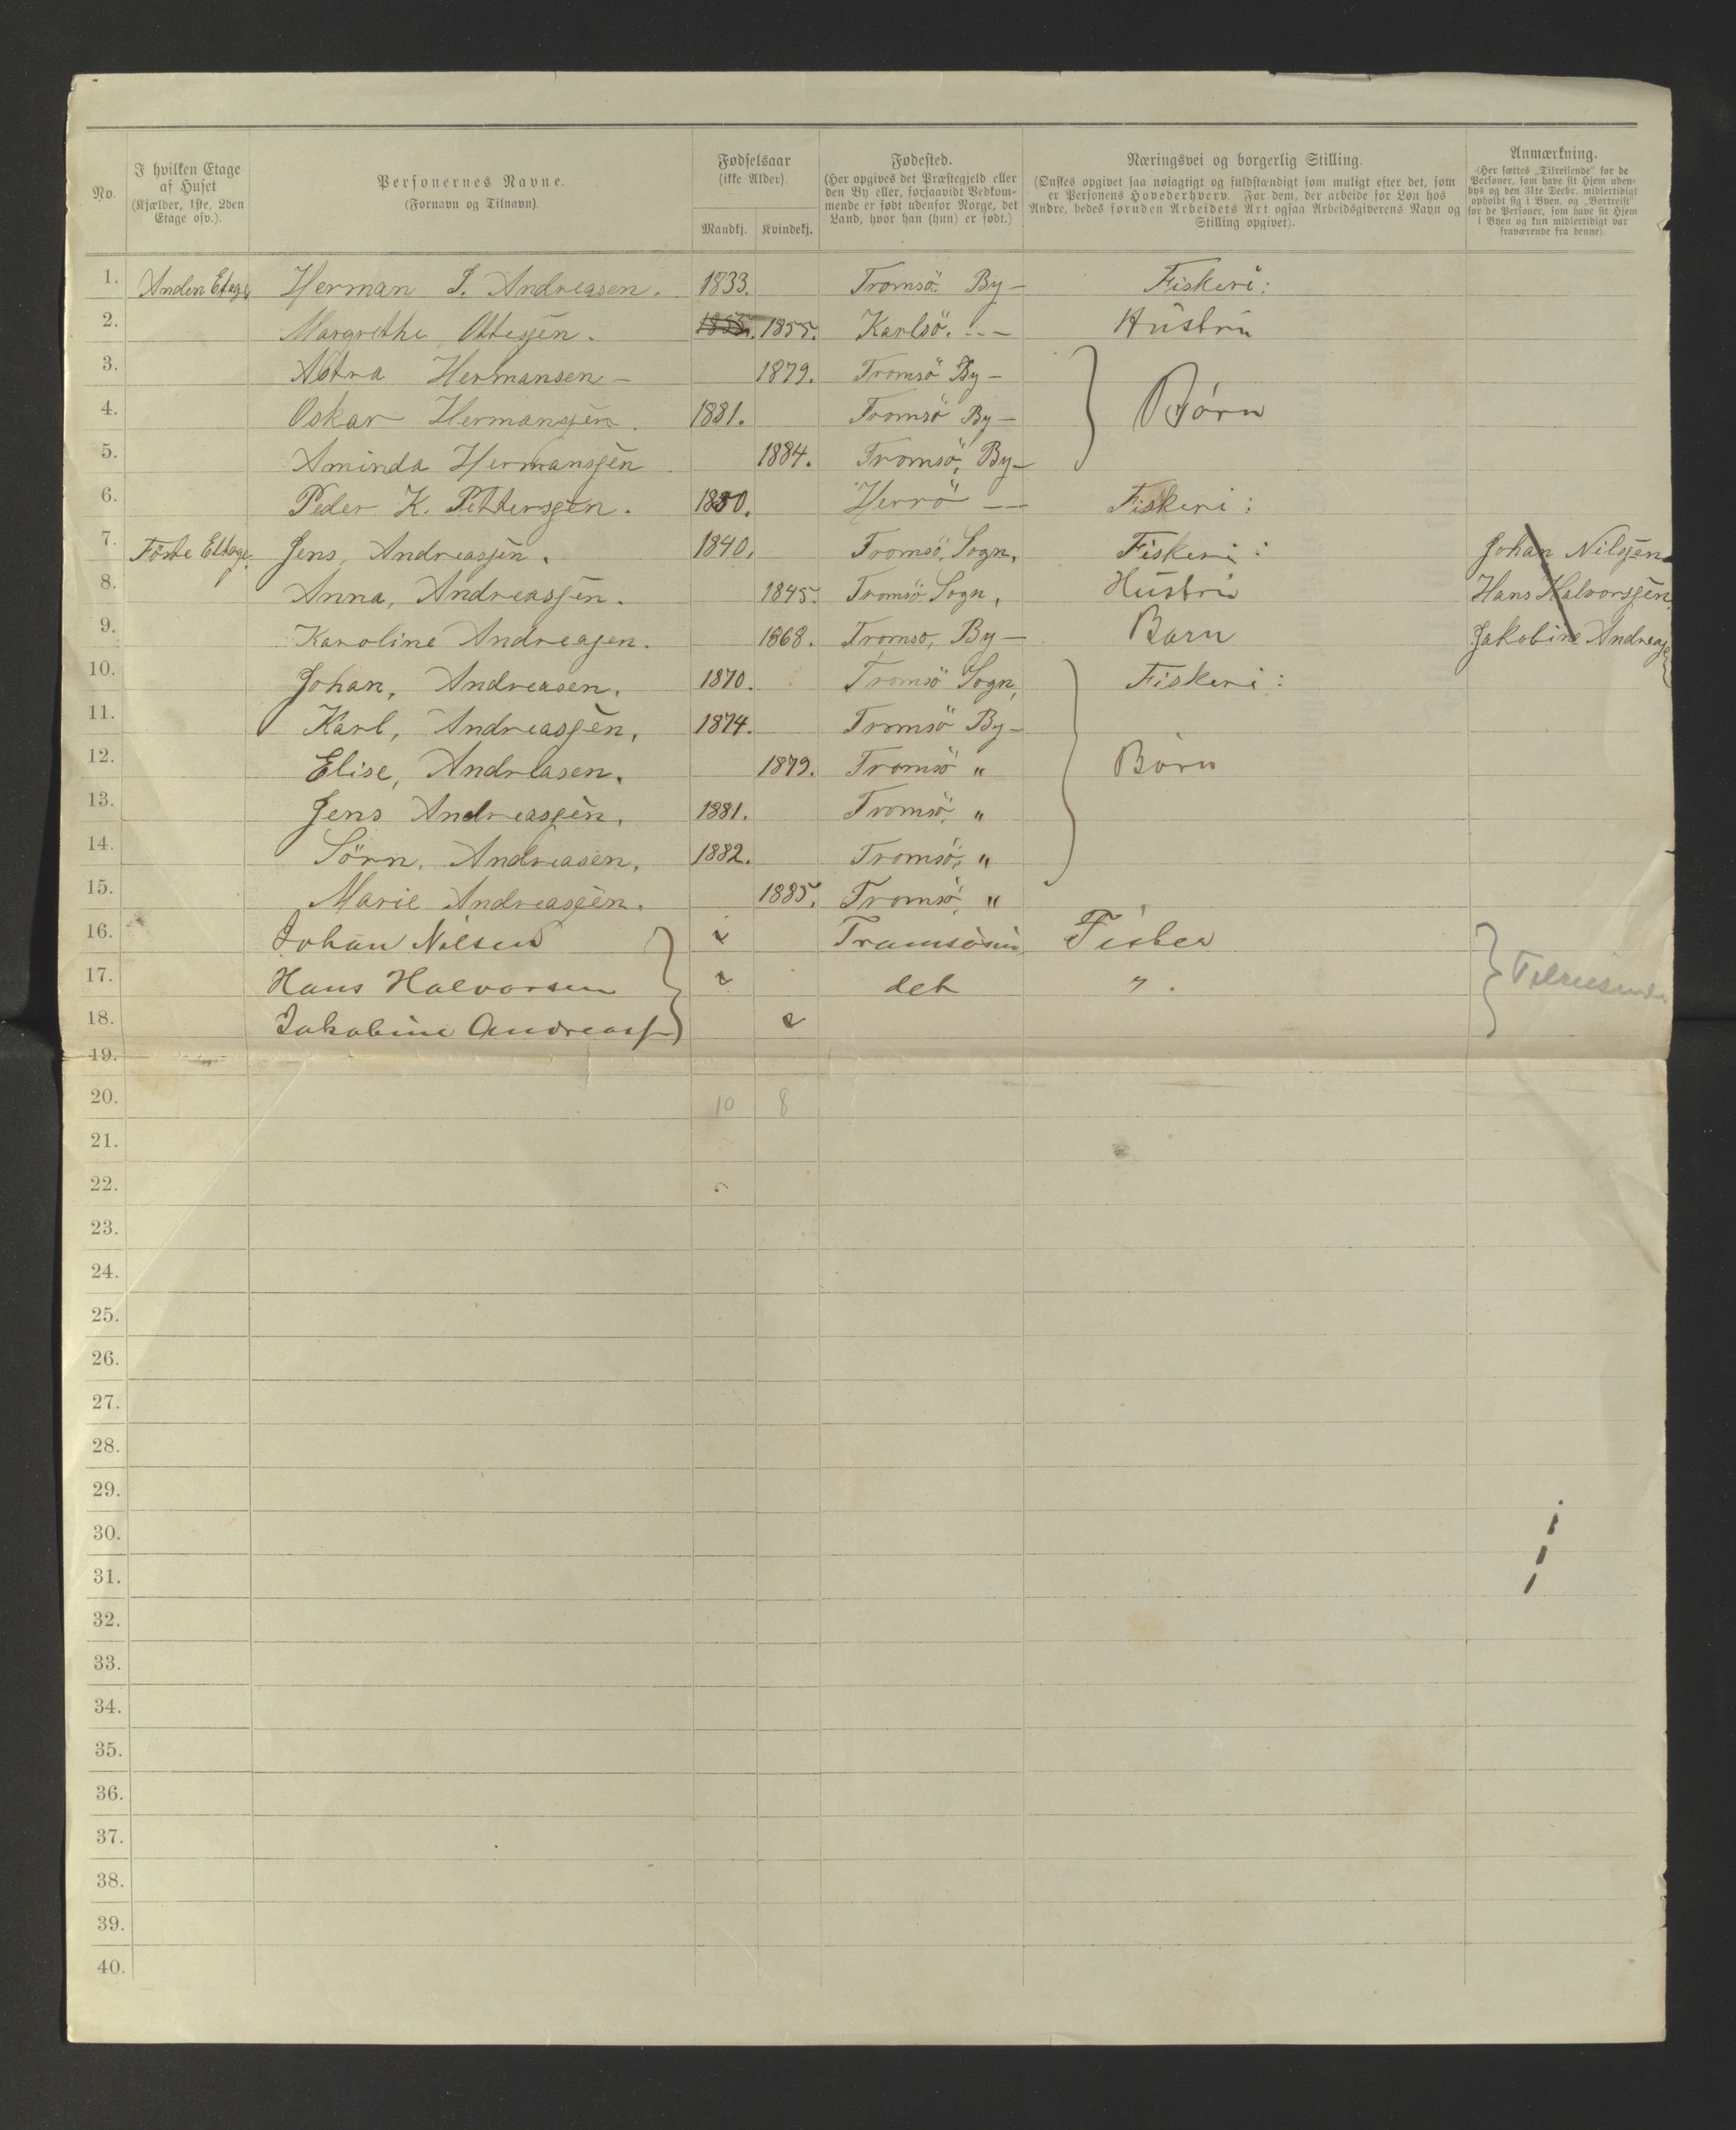 No.
I hvilken Etage
af Huset
(Kjælder, 1ste, 2den
Etage osv.).
Personernes Navne.
(Fornavn og Tilnavn).
Fødselsaar
(ikke Alder)
Mandkj. Kvindekj.
Fødested.
(Her opgives det Præstegjeld eller
den By eller, forsaavidt Vedkom-
mende er født udenfor Norge, det
Land, hvor han (hun) er født.)
Næringsvei og borgerlig Stilling.
(Ønskes opgivet saa nøiagtigt og fuldstændigt som muligt efter det, som
er Personens Hovederhverv. For dem, der arbeide for Løn hos
Andre, bedes foruden Arbeidets Art ogsaa Arbeidsgiverens Navn og
Stilling opgivet).
Anmærkning.
(Her sættes „Tilreisende" for de
Personer, som have sit Hjem uden-
bys og den 31te Decbr. midlertidigt
opholdt sig i Byen, og „Bortreist"
for de Personer, som have sit Hjem
i Byen og kun midlertidigt var
fraværende fra denne).
1. Anden Etage Herman J. Andreasen. 1833. Tromsö By — Fiskeri:
2. Margrethe Ottesjen. 1855. 1855. Karlsö. — Hústrú
3. Astra Hermansen — 1879. Tromsö By —
4. Oskar Hermansjen. 1881. Tromsö By — Börn
5. Aminda Hermansjen 1884. Tromsö, By —
6. Peder K. Pettersjen. 1880. Herrö — Fiskeri:
7. Förste Ettage. Jens, Andreasjen. 1840. Tromsö, Sogn, Fiskeri: Johan Nilsjen
8. Anna, Andreasjen. 1845. Tromsö Sogn, Hústrú Hans Halvorsjen
9. Karoline Andreasen. 1868. Tromsö, By — Barn Jakobine Andreasj
10. Johan, Andreasen. 1870. Tromsö Sogn, Fiskeri:
11. Karl, Andreasjen, 1874. Tromsö By —
12. Elise, Andreasen. 1879. Tromsö " Börn
13. Jens Andreasjen, 1881. Tromsö, "
14. Sörn, Andreasen. 1882. Tromsö, "
15. Marie Andreasjen. 1885. Tromsö, "
16. Johan Nilsen Fisker
17. Hans Halvorsen det " . Tilreisende
18. Jakobine Andreass
19.
20. 10 8
21.
22.
23.
24.
25.
26.
27.
28.
29.
30.
31.
32.
33.
34.
35.
36.
37.
38.
39.
40.